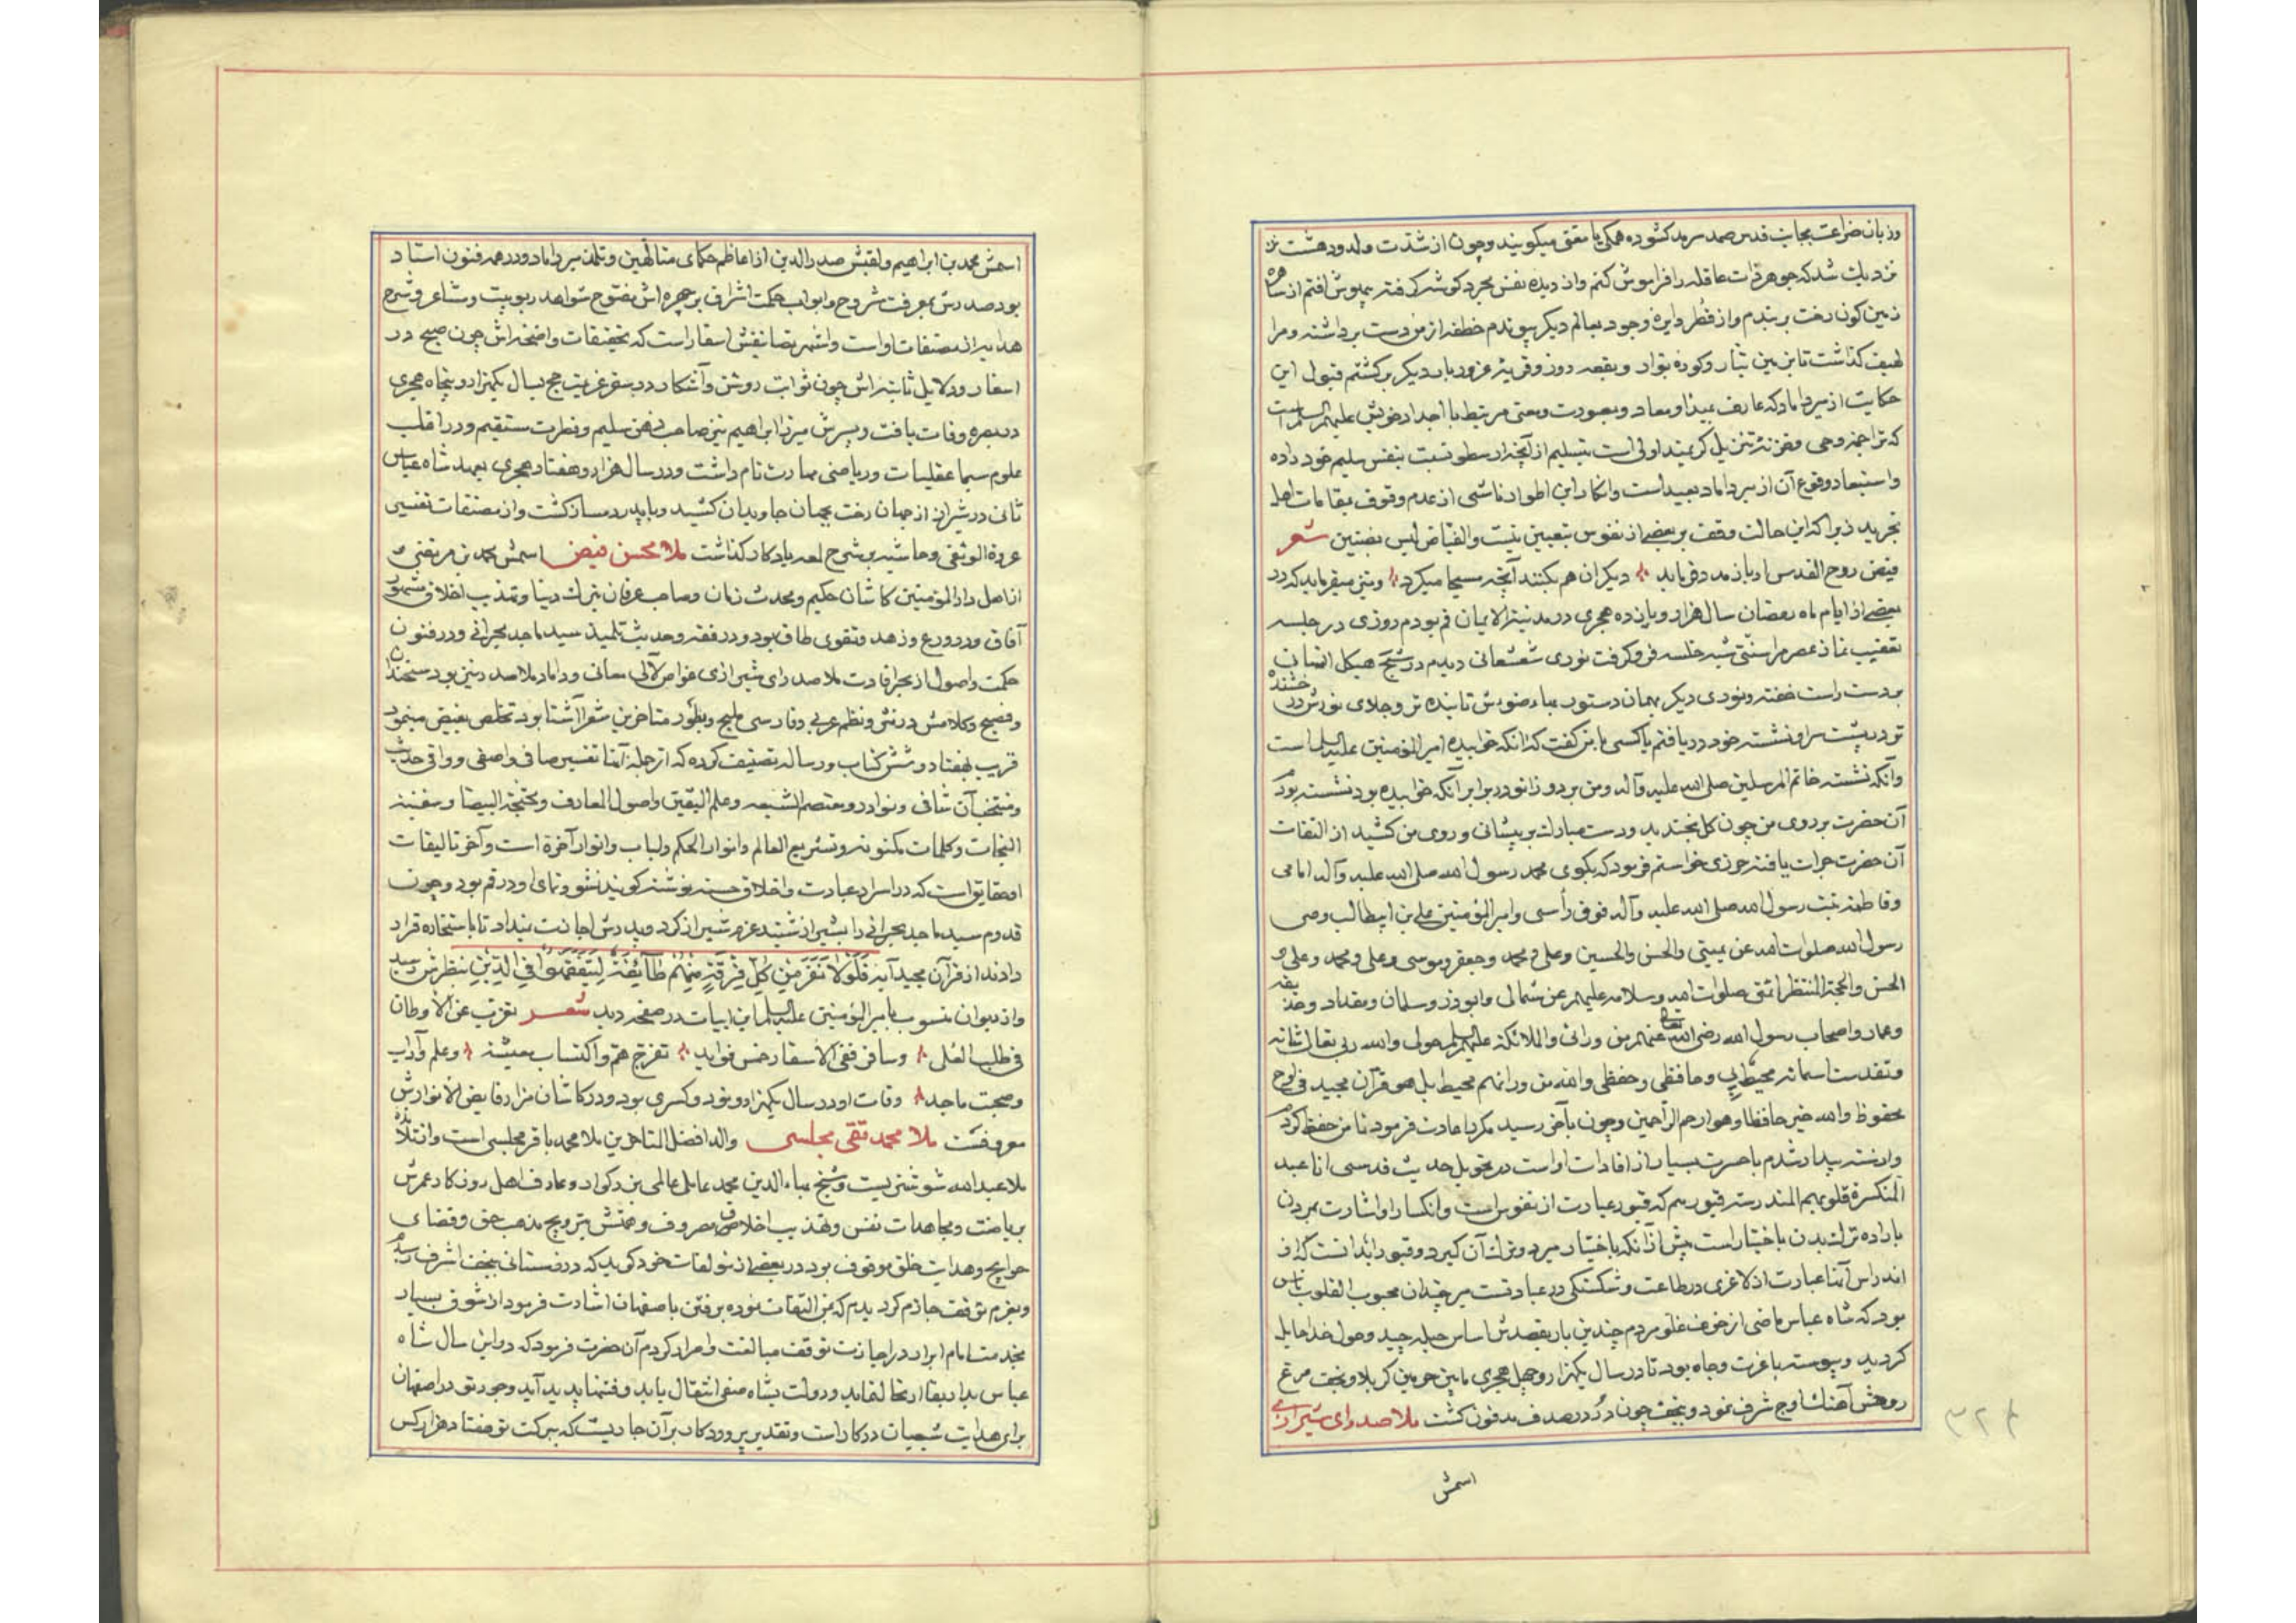 وزبان ضراعت بجانب قدس صمد سرمد کشوده همکی یا مغنی میکویند و چون از شدت وله و دهشت
نزدیک شد که جوهر ذات عاقله را فراموش کنم و از دیده نفس مجرده کوشه کرفته بیهوش افتم از ساهره
زمین کون رخت بربندم و از قطر دایره وجود بعالم دیکر پیوندم خطفه از من دست برداشته و مرا
لهیف کذاشت تا بزمین تبار و کوره بوار و بقعه زور و قریه غرور بار دیکر برکشتم قبول این
حکایت از میر داماد که عارف مبدا و معاد و بصورت و معنی مرتبط با اجداد خویش علیهم السلام است
که تراجمه وحی و خزنه تنزیل کریمند اولی است بتسلیم از آنچه ارسطو نسبت بنفس سلیم خود داده
و استبعاد وقوع آن از میر داماد بعید است و انکار این اطوار ناشی از عدم وقوف بمقامات اهل
تجرید زیرا که این حالت وقف بر بعضی از نفوس بتعیین نیست والفیاض لیس بضنین شعر
فیض روح القدس ار باز مدد فرماید دیکران هم بکنند آنچه مسیحا میکرد و نیز میفرماید که در
بعضی از ایام ماه رمضان سال هزار و یازده هجری در مدینة الایمان قم بودم روزی در جلسه
تعقیب نماز عصر مرا سنتی شبه خلسه فرو کرفت نوری شعشعانی دیدم در شبح هیکل انسانی
بر دست راست خفته و نوری دیکر بهمان دستور بهاء ضوئش تابنده تر و جلای نورش درخشنده
تر در پشت سر او نشسته خود دریافتم یا کسی با من کفت که آنکه خوابیده امیر المؤمنین علیه السلام است
و آنکه نشسته خاتم المرسلین صلی الله علیه و آله و من بر دو زانو در برابر آنکه خوابیده بود نشسته بودم
آن حضرت بر روی من چون کل بخندید و دست مبارک بر پیشانی و روی من کشید از التفات
آن حضرت جرات یافته حرزی خواستم فرمود که بکوی محمد رسول الله صلی الله علیه و آله امامی
و فاطمة بنت رسول الله صلی الله علیه و آله فوق رأسی و امیر المؤمنین علی بن ابیطالب وصی
رسول الله صلوات الله عن یمینی والحسن والحسین وعلی و محمد وجعفر وموسی وعلی و محمد وعلی و
الحسن والحجة المنتظر ائمتی صلوات الله وسلامه علیهم عن شمالی وابوذر وسلمان ومقداد وحذیفه
وعمار واصحاب رسول الله رضی الله تعالی عنهم من ورائی والملائکة علیهم السلم حولی والله ربی تعالی شانه
وتقدست اسمائه محیط بی وحافظی وحفیظی والله من ورائهم محیط بل هو قرآن مجید فی لوح
محفوظ والله خیر حافظا وهو ارحم الراحمین و چون بآخر رسید مکرر باعادت فرمود تا من حفظ کردم
و از سنه بیدار شدم با حسرت بسیار از افادات او است در تحویل حدیث قدسی انا عند
المنکسرة قلوبهم المندرسة قبورهم که قبور عبارت از نفوس است و انکسار او اشارت بمردن
باراده ترک بدن باختیار است پیش از آنکه باختیار میرد و ترک آن کیرد و قبور ابدانست که از
اندراس آنها عبارت از لاغری در طاعت و شکستکی در عبادتست میر چندان محبوب القلوب ناس
بود که شاه عباس ماضی از خوف غلو مردم چندین بار بقصدش اساس حیله چید و صول خدا حایل
کردید و پیوسته با عزت و جاه بود تا در سال یکهزار و چهل هجری مابین حرمین کربلا و نجف مرغ
روحش آهنک اوج شرف نمود و بنجف چون در در صدف مدفون کشت ملا صدرای شیرازی
اسمش
۳۲۴
اسمش محمد بن ابراهیم و لقبش صدر الدین از اعاظم حکمای متالهین و تلمذ میر داماد و در همه فنون استاد
بود صدرش بمعرفت مشروح و ابواب حکمت اشراق بر چهره اش مفتوح شواهد ربوبیت و مشاعر و شرح
هدایه از مصنفات او است و اشهر تصانیفش اسفار است که تحقیقات واضحه اش چون صبح در
اسفار و دلایل ثابته اش چون ثوابت روشن و آشکار در سفر عزیمت حج بسال یکهزار و پنجاه هجری
در بصره وفات یافت و پسرش میرزا ابراهیم نیز صاحب ذهن سلیم و فطرت مستقیم و در اغلب
علوم سیما عقلیات و ریاضی مهارت تام داشت و در سال هزار و هفتاد هجری بعهد شاه عباس
ثانی در شیراز از جهان رخت بجهان جاویدان کشید و با پدر دمساز کشت و از مصنفات تفسیر
عروة الوثقی و حاشیه بر شرح لمعه یادکار کذاشت ملا محسن فیض اسمش محمد بن مرتضی
از اهل دار المؤمنین کاشان حکیم و محدث زمان و صاحب عرفان بترک دنیا و تهذیب اخلاق مشهور
آفاق و در ورع و زهد و تقوی طاق بود و در فقه و حدیث تلمیذ سید ماجد بحرانی و در فنون
حکمت و اصول از بحر افادت ملا صدرای شیرازی غواص لآلی معانی و داماد ملا صدر نیز بود سخندان
و فصیح و کلامش در نثر و نظم عربی و فارسی ملیح و بطور متاخرین شعر آشنا بود تخلص بفیض مینمود
قریب بهفتاد و شش کتاب و رساله تصنیف کرده که از جمله آنها تفسیر صافی و اصفی و وافی حدیث
و منتخب آن شافی و نوادر و معتصم الشیعه و علم الیقین و اصول المعارف و محجة البیضا و سفینة
النجات و کلمات مکنونه و تشریح العالم و انوار الحکم و لباب و انوار آخرة است و آخر تالیفات
او حقایق است که در اسرار عبادت و اخلاق حسنه نوشته کویند نشو و نمای او در قم بود و چون
قدوم سید ماجد بحرانی را بشیراز شنید عزم شیراز کرد و پدرش اجازت نمیداد تا باستخاره قرار
دادند از قرآن مجید آیه فَلَوْلَا نَفَرَ مِن كُلِّ فِرْقَةٍ مِّنْهُمْ طَائِفَةٌ لِّيَتَفَقَّهُوا فِي الدِّينِ بنظرش رسید
و از دیوان منسوب بامیر المؤمنین علیه السلم این ابیات در صفحه دید شعر تغرب عن الاوطان
فی طلب العلی وسافر ففی الاسفار خمس فواید تفرج هم واکتساب معیشة وعلم وآداب
وصحبت ماجد وفات او در سال یکهزار و نود و کسری بود و در کاشان مزار فایض الانوارش
معروفست ملا محمد تقی مجلسی والد افضل المتاخرین ملا محمد باقر مجلسی است و از تلامذه
ملا عبدالله شوشتریست و شیخ بهاء الدین محمد عاملی عالمی بزرکوار و عارف اهل روزکار عمرش
بریاضت و مجاهدات نفس و تهذیب اخلاق مصروف و همتش بترویج مذهب حق و قضای
حوایج و هدایت خلق موقوف بود در بعضی از مولفات خود کوید که در زمستانی بنجف اشرف رسیدم
و بعزم توقف جازم کردیدم که بمن التفات نموده برفتن باصفهان اشارت فرمود از شوق بسیار
بخدمت امام ابرار در اجازت توقف مبالغت و اصرار کردم آن حضرت فرمود که در این سال شاه
عباس بدار بقا ارتحال نماید و دولت بشاه صفی انتقال یابد و فتنها پدید آید وجود تو در اصفهان
برای هدایت شیعیان در کار است و تقدیر پروردکار بر آن جاریست که ببرکت تو هفتاد هزار کس